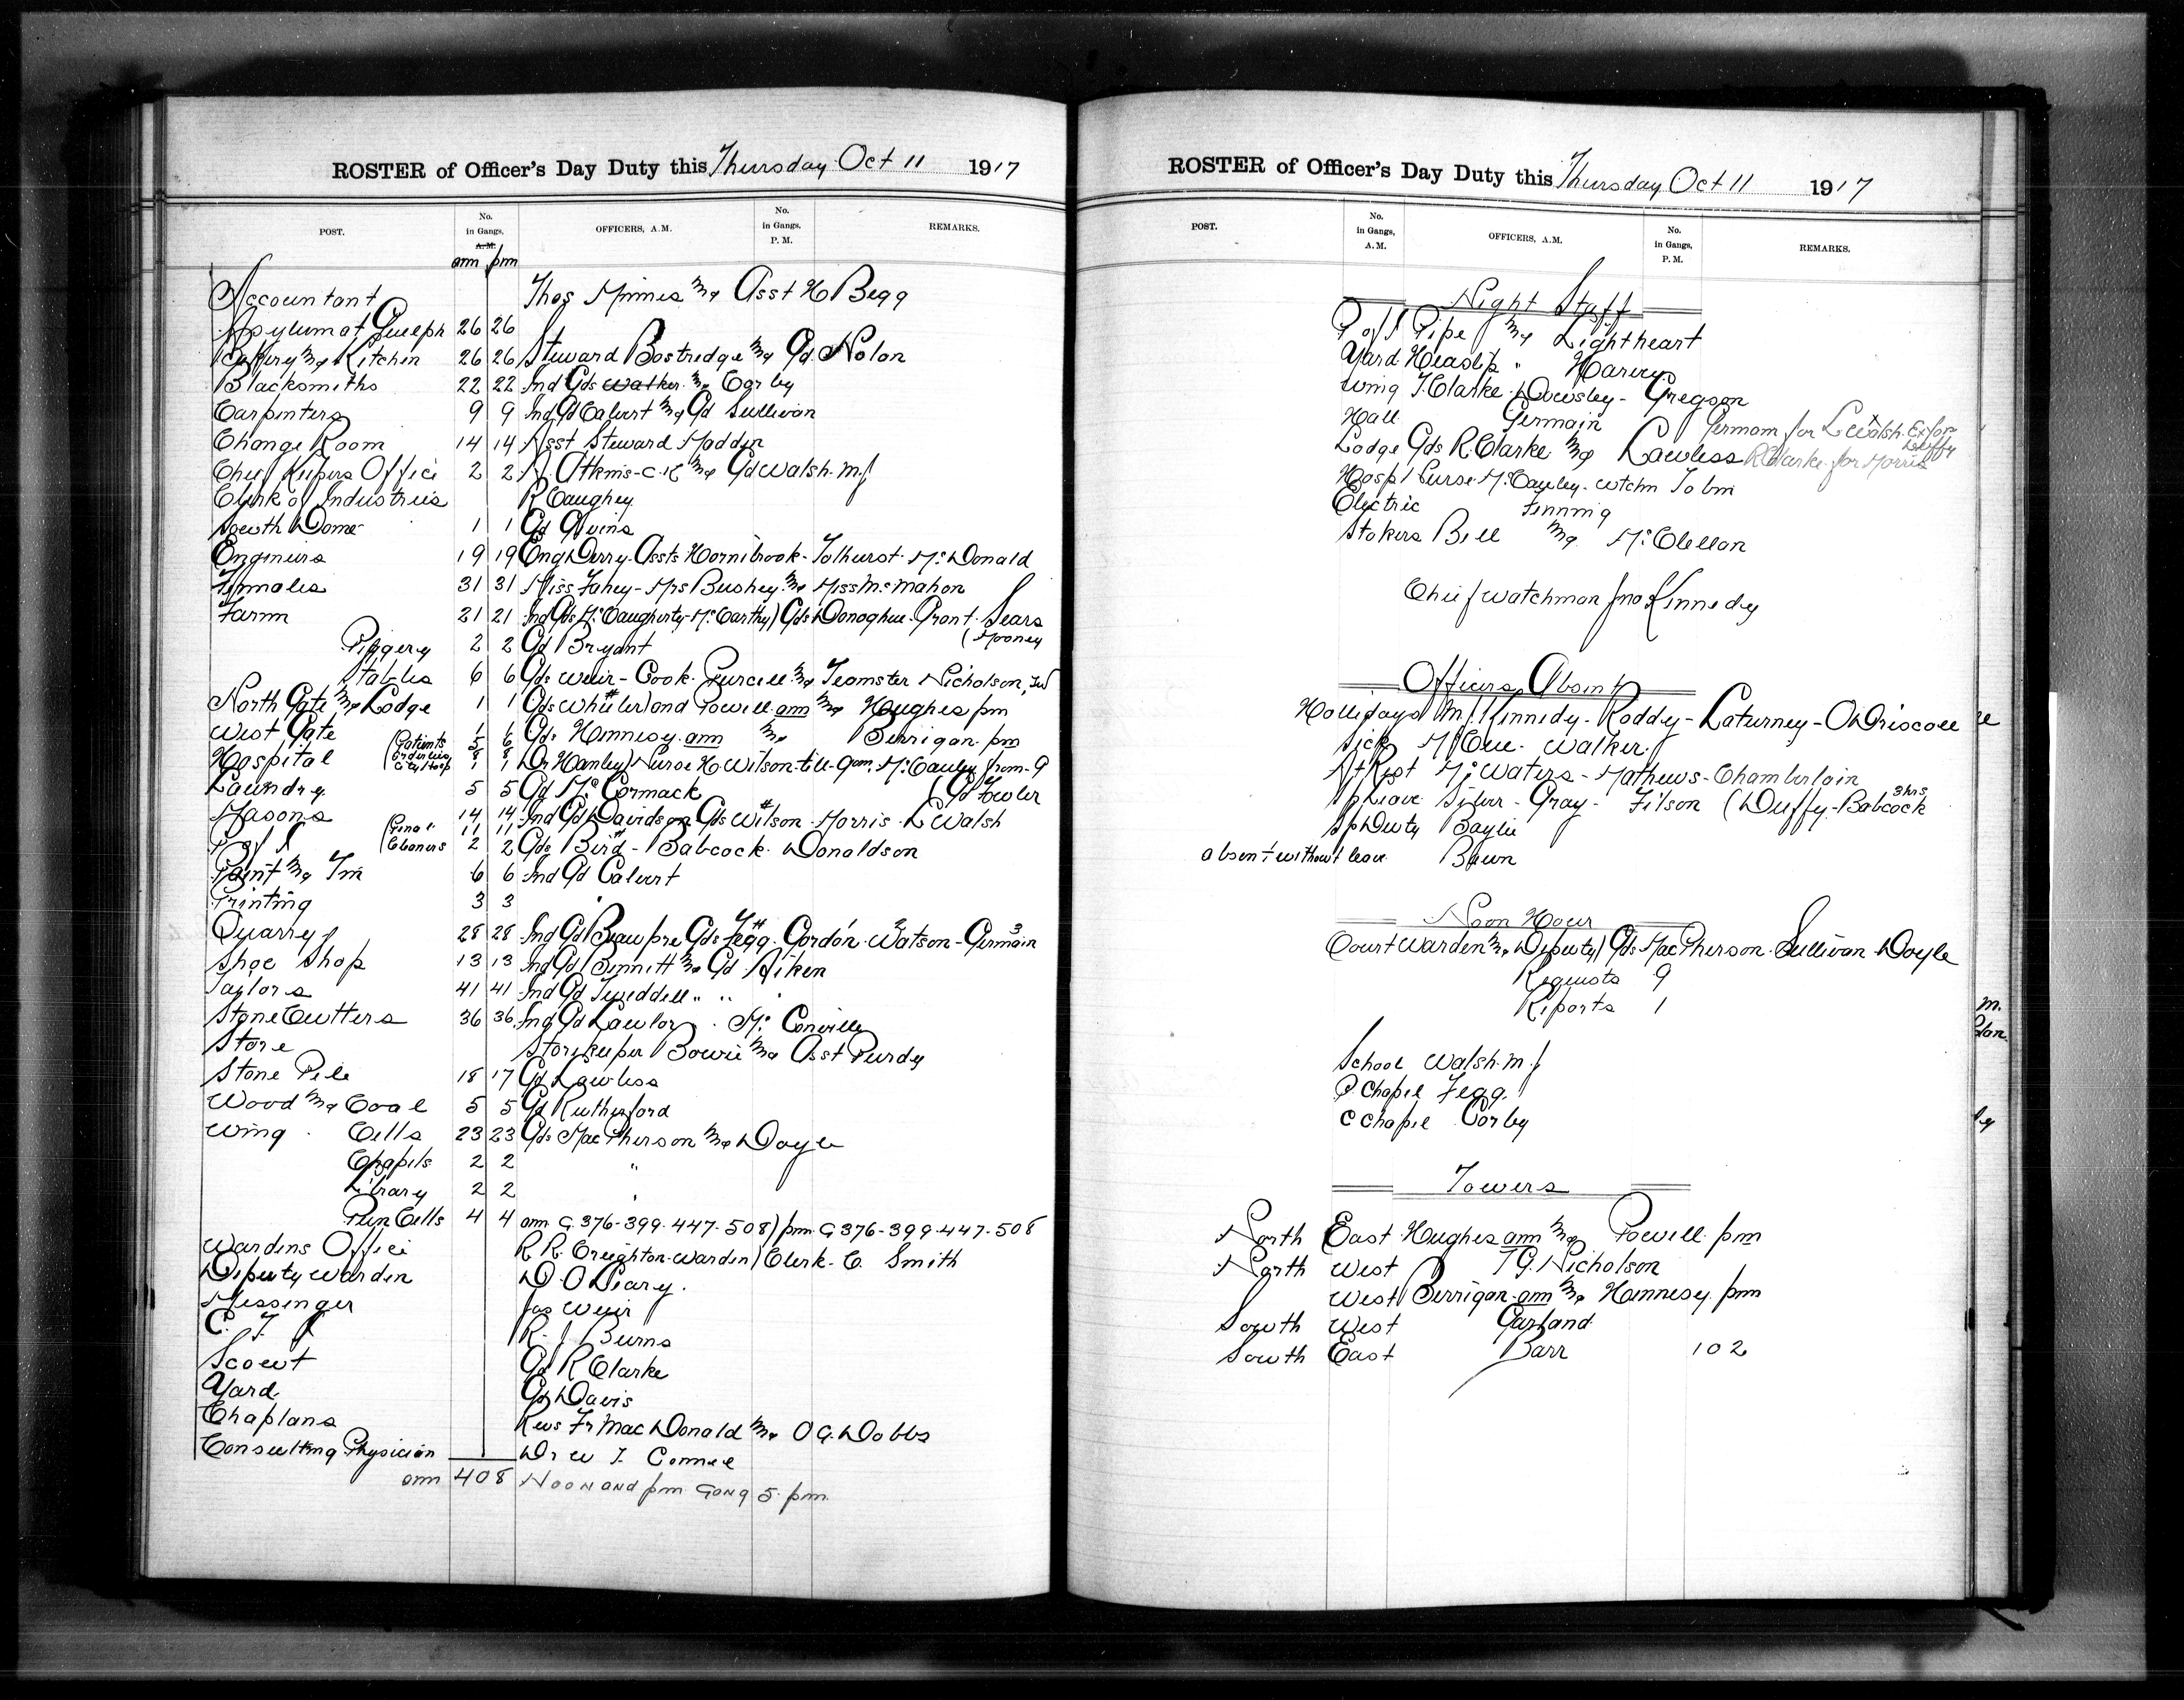 ROSTER of Officer's Day Duty this Thursday Oct 11 1917
POST. No. in Gangs. A.M. OFFICERS, A.M. No. in Gangs, P.M. REMARKS.
am pm
Accountant Thos Minnes & Asst H Begg
Asylum at Guelph 26 26
Bakery & Kitchin 26 26 Steward Bostridge & Gd Nolan
Blacksmiths 22 22 Ind Gds Walker & Corby
Carpenters 9 9 Ind Gd Calvert & Gd Sullivan
Change Room 14 14 Asst Steward Maddin
Chief Kepers Office 2 2 R Atkins-C.K & Gd Walsh. M J
Clerk of Industries R Caughey
South Dome 1 1 Gd Givins
Engineers 19 19 Eng Derry. Assts Hornibrook - Tolhurst - McDonald
Females 31 31 Miss Fahey - Mrs Bushey & Miss McMahon
Farm 21 21 Ind Gds McCaugherty - McCarthy) Gds Donoghue - Grant - Sears
(Mooney
Piggery 2 2 Gd Bryant
Stables 6 6 Gds Weir - Cook - Purcell & Teamster Nicholson,
North Gate & Lodge 1 1 Gds Wheeler and Powell am & Hughes pm
West Gate 1 1 Gds Hennesy am & Berrigan pm
Hospital (Patients 5 6
Orderlies 8 8
City Hosp 1 1 Dr Hanley) Nurse H Wilson - till - 9 am. McCauley from - 9
Laundry 5 5 Gd McCormack (Gd Fowler
Masons 14 14 Ind Gd Davidson Gds Wilson - Morris - L Walsh
P of I (Penal 11 11
Cleaners 2 2 Gds Bird - Babcock - Donaldson
Paint & Tin 6 6 Ind Gd Calvert
Printing 3 3 "
Quarry 28 28 Ind Gd Beaupre Gds Fegg - Gordon - Watson - Germain
Shoe Shop 13 13 Ind Gd Bennitt & Gd Aiken
Taylors 41 41 Ind Gd Tweddell " " "
Stone Cutters 36 36 Ind Gd Lawlor . McConville
Store Storekeeper Bowie & Asst Purdy
Stone Pile 18 17 Gd Lawless
Wood & Coal 5 5 Gd Rutherford
Wing . Cells 23 23 Gds MacPherson & Doyle
Chapels 2 2 "
Library 2 2 "
Pun Cells 4 4 am G 376-399-447-508) pm G 376-399-447-508
Wardens Office R R Creighton - Warden) Clerk - C. Smith
Deputy Warden D. O Leary.
Messenger Jas Weir
R. J Burns
Scout Gd R Clarke
Yard Gds Davis
Chaplans Revs Fr MacDonald & O G. Dobbs
Consulting Physician Dr W T. Connell
am 408 Noon and pm Gang 5 pm
ROSTER of Officer's Day Duty this Thursday Oct 11 1917
POST. No. in Gangs, A.M. OFFICERS, A.M. No. in Gangs, P.M. REMARKS.
Night Staff
P of I Pipe & Lightheart
Yard Heaslip " Harvey
Wing T. Clarke - Dowsley - Gregson
Hall Germain Germain for L Walsh Ex for Duffy
Lodge Gds R Clarke & Lawless R Clarke for Morris
Hospl Nurse McCauley - Wtchm Tobin
Electric Finning
Stokers Bell & McClellan
Chief Watchman Jno Kennedy
Officers Absent
Hollidays M J Kennedy - Roddy - Laturney - O Driscoll
Sick McCue - Walker
At Rest McWaters - Mathews - Chamberlain
Sp Leave Silver - Gray - Filson (Duffy - Babcock 3 hrs
Sp Duty Baylie
absent without leave Bawn
Noon Hour
Court Warden & Deputy) Gds MacPherson - Sullivan Doyle
Requests 9
Reports 1
School Walsh. M J
P Chapel Fegg
C Chapel Corby
Towers
North East Hughes am & Powell pm
North West T G. Nicholson
West Berrigan am & Hennesy pm
South West Garland
South East Barr 102